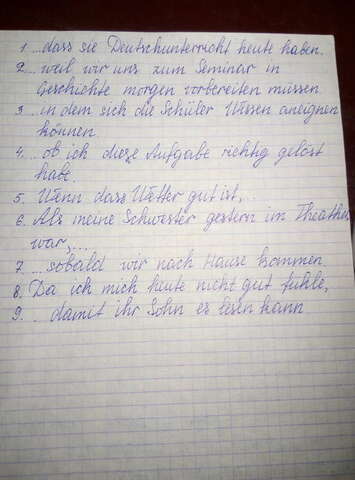 1. ...dass sie Deutschunterricht heute haben.
2. ...weil wir uns zum Seminar in
Geschichte morgen vorbereiten müssen.
3. ...in dem sich die Schüler Wissen aneignen
können.
4. ...ob ich diese Aufgabe richtig gelöst
habe.
5. Wenn dass Wetter gut ist,...
6. Als meine Schwester gestern im Theather
war,...
7. ...sobald wir nach Hause kommen.
8. Da ich mich heute nicht gut fühle,
9. ...damit ihr Sohn es lesen kann